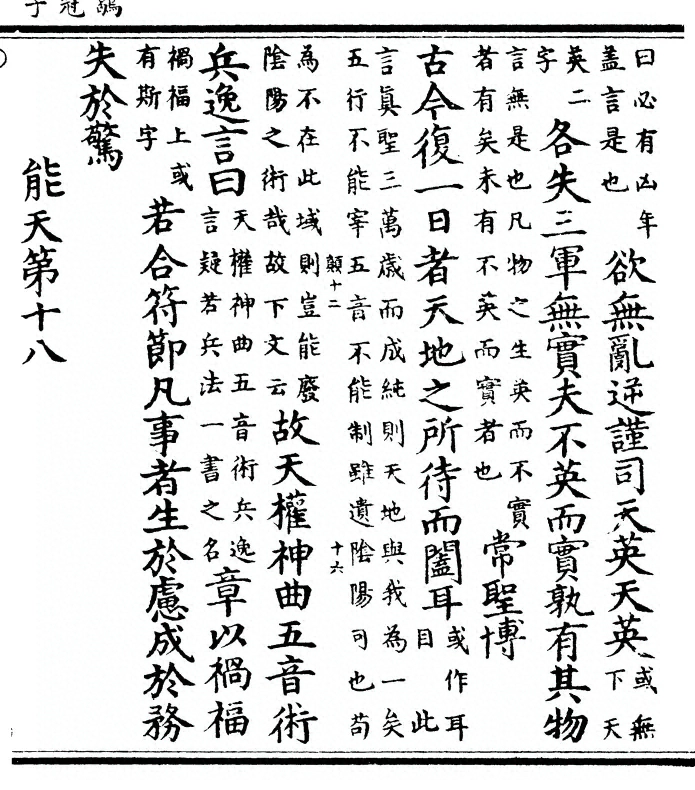 鶡冠子
曰必有凶年
蓋言是也
欲無亂逆謹司天英天英
或無
下天
英二
字
各失三軍無實夫不英而實孰有其物
言無是也凡物之生英而不實
者有矣未有不英而實者也
常聖博
古今復一日者天地之所待而闔耳
或作耳
目此
言眞聖三萬歲而成純則天地與我為一矣
五行不能宰五音不能制雖遺陰陽可也苟
顛十二
十六
為不在此域則豈能廢
陰陽之術哉故下文云
故天權神曲五音術
兵逸言曰
天權神曲五音術兵逸
言疑若兵法一書之名
章以禍福
禍福上或
有斯字
若合符節凡事者生於慮成於務
失於驚
能天第十八